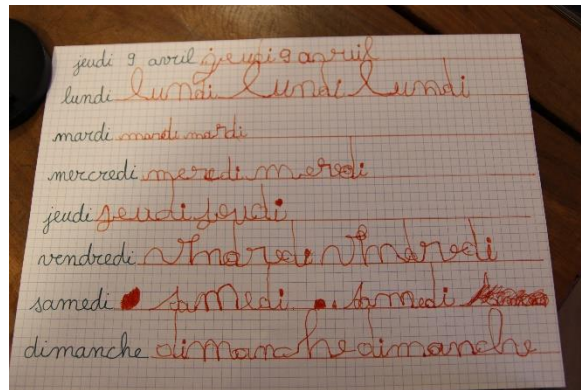 jeudi 9 avril jeudi 9 avruil
lundi lundi lundi lundi
mardi mardi mardi
mercredi meredi meredi
jeudi jeudi jeudi
vendredi vhndredi vhndredi
samedi samedi samedi
dimanche dimanche dimanche